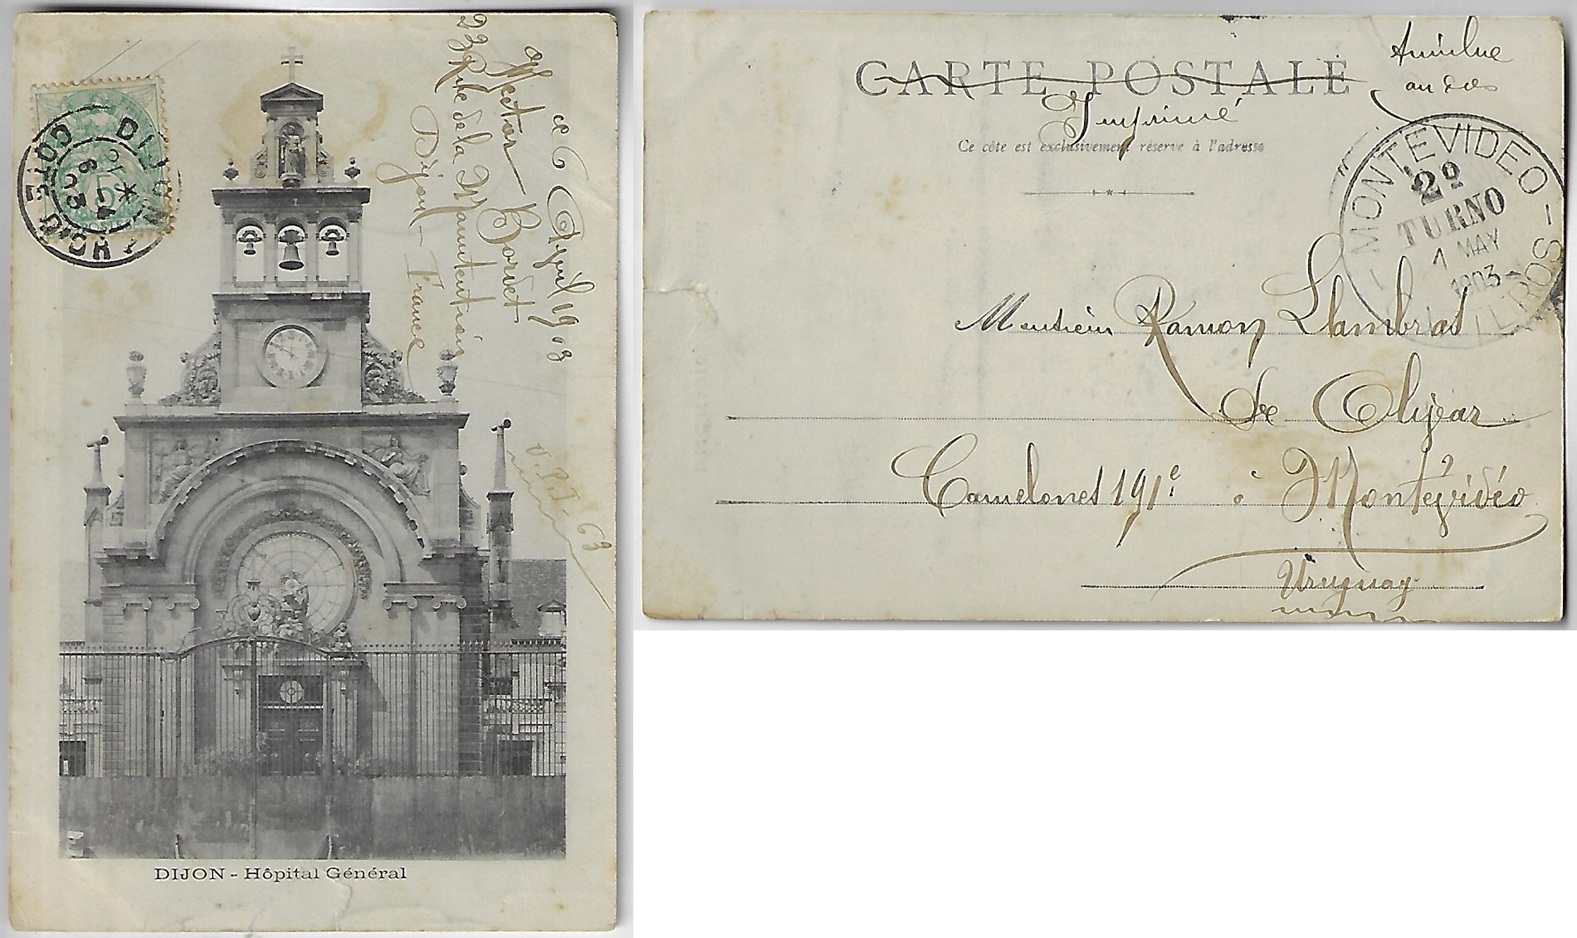 ce 6 Avril 1903
Hector Borvet
23 Rue de la Manutention
Dijon - France
U.P.I. 63
DIJON
COTE D'OR
6
AVRIL
03
5
DIJON - Hôpital Général
CARTE POSTALE
Imprimé
Ce côté est exclusivement réservé à l'adresse
au dos
MONTEVIDEO
2º
TURNO
1 MAY
1903
Monsieur Ramon Llambias
de Olivar
Camelones 191e à Montévidéo
Uruguay